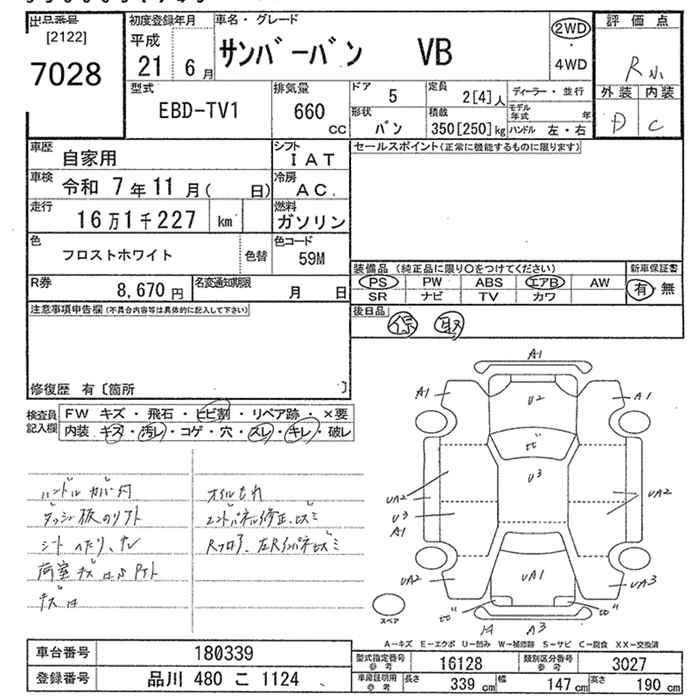 出品番号
[2122]
7028
初度登録年月
平成
21年 6月
車名・グレード
サンバーバン VB
2WD
・
4WD
評価点
R
外装 内装
D C
型式
EBD-TV1
排気量
660
CC
ドア
5
定員
2[4]人
ディーラー・並行
形状
バン
積載
350[250]kg
モデル年式 年
ハンドル 左・右
車歴
自家用
シフト
IAT
セールスポイント(正常に機能するものに限ります)
車検
令和 7年11月( 日)
冷房
AC
走行
16万1千227 km
燃料
ガソリン
色
フロストホワイト
色替
色コード
59M
装備品 (純正品に限り○をつけてください)
新車保証書
PS PW ABS エアB AW
有・無
SR ナビ TV カワ
R券
8,670円
名変通知期限
月 日
後日品
保 取
注意事項申告欄(不具合内容等は具体的に記入して下さい)
修復歴 有〔箇所 〕
検査員
記入欄
FW キズ・飛石・ヒビ割・リペア跡・×要
内装 キズ・汚レ・コゲ・穴・スレ・キレ・破レ
ハンドルカバー付
オイルもれ
ダッシュ板のリフト
シートへたり、
荷室キズ
キズ
A1
A1
U2
A1
U3
UA2
U3
A1
UA2
UA2
UA1
UA3
A3
スペア
A-キズ E-エクボ U-凹み W-補修跡 S-サビ C-腐食 XX-交換済
車台番号
180339
型式指定番号
参考
16128
類別区分番号
参考
3027
登録番号
品川 480 こ 1124
車庫証明用
参考
長さ
339 cm
幅
147 cm
高さ
190 cm